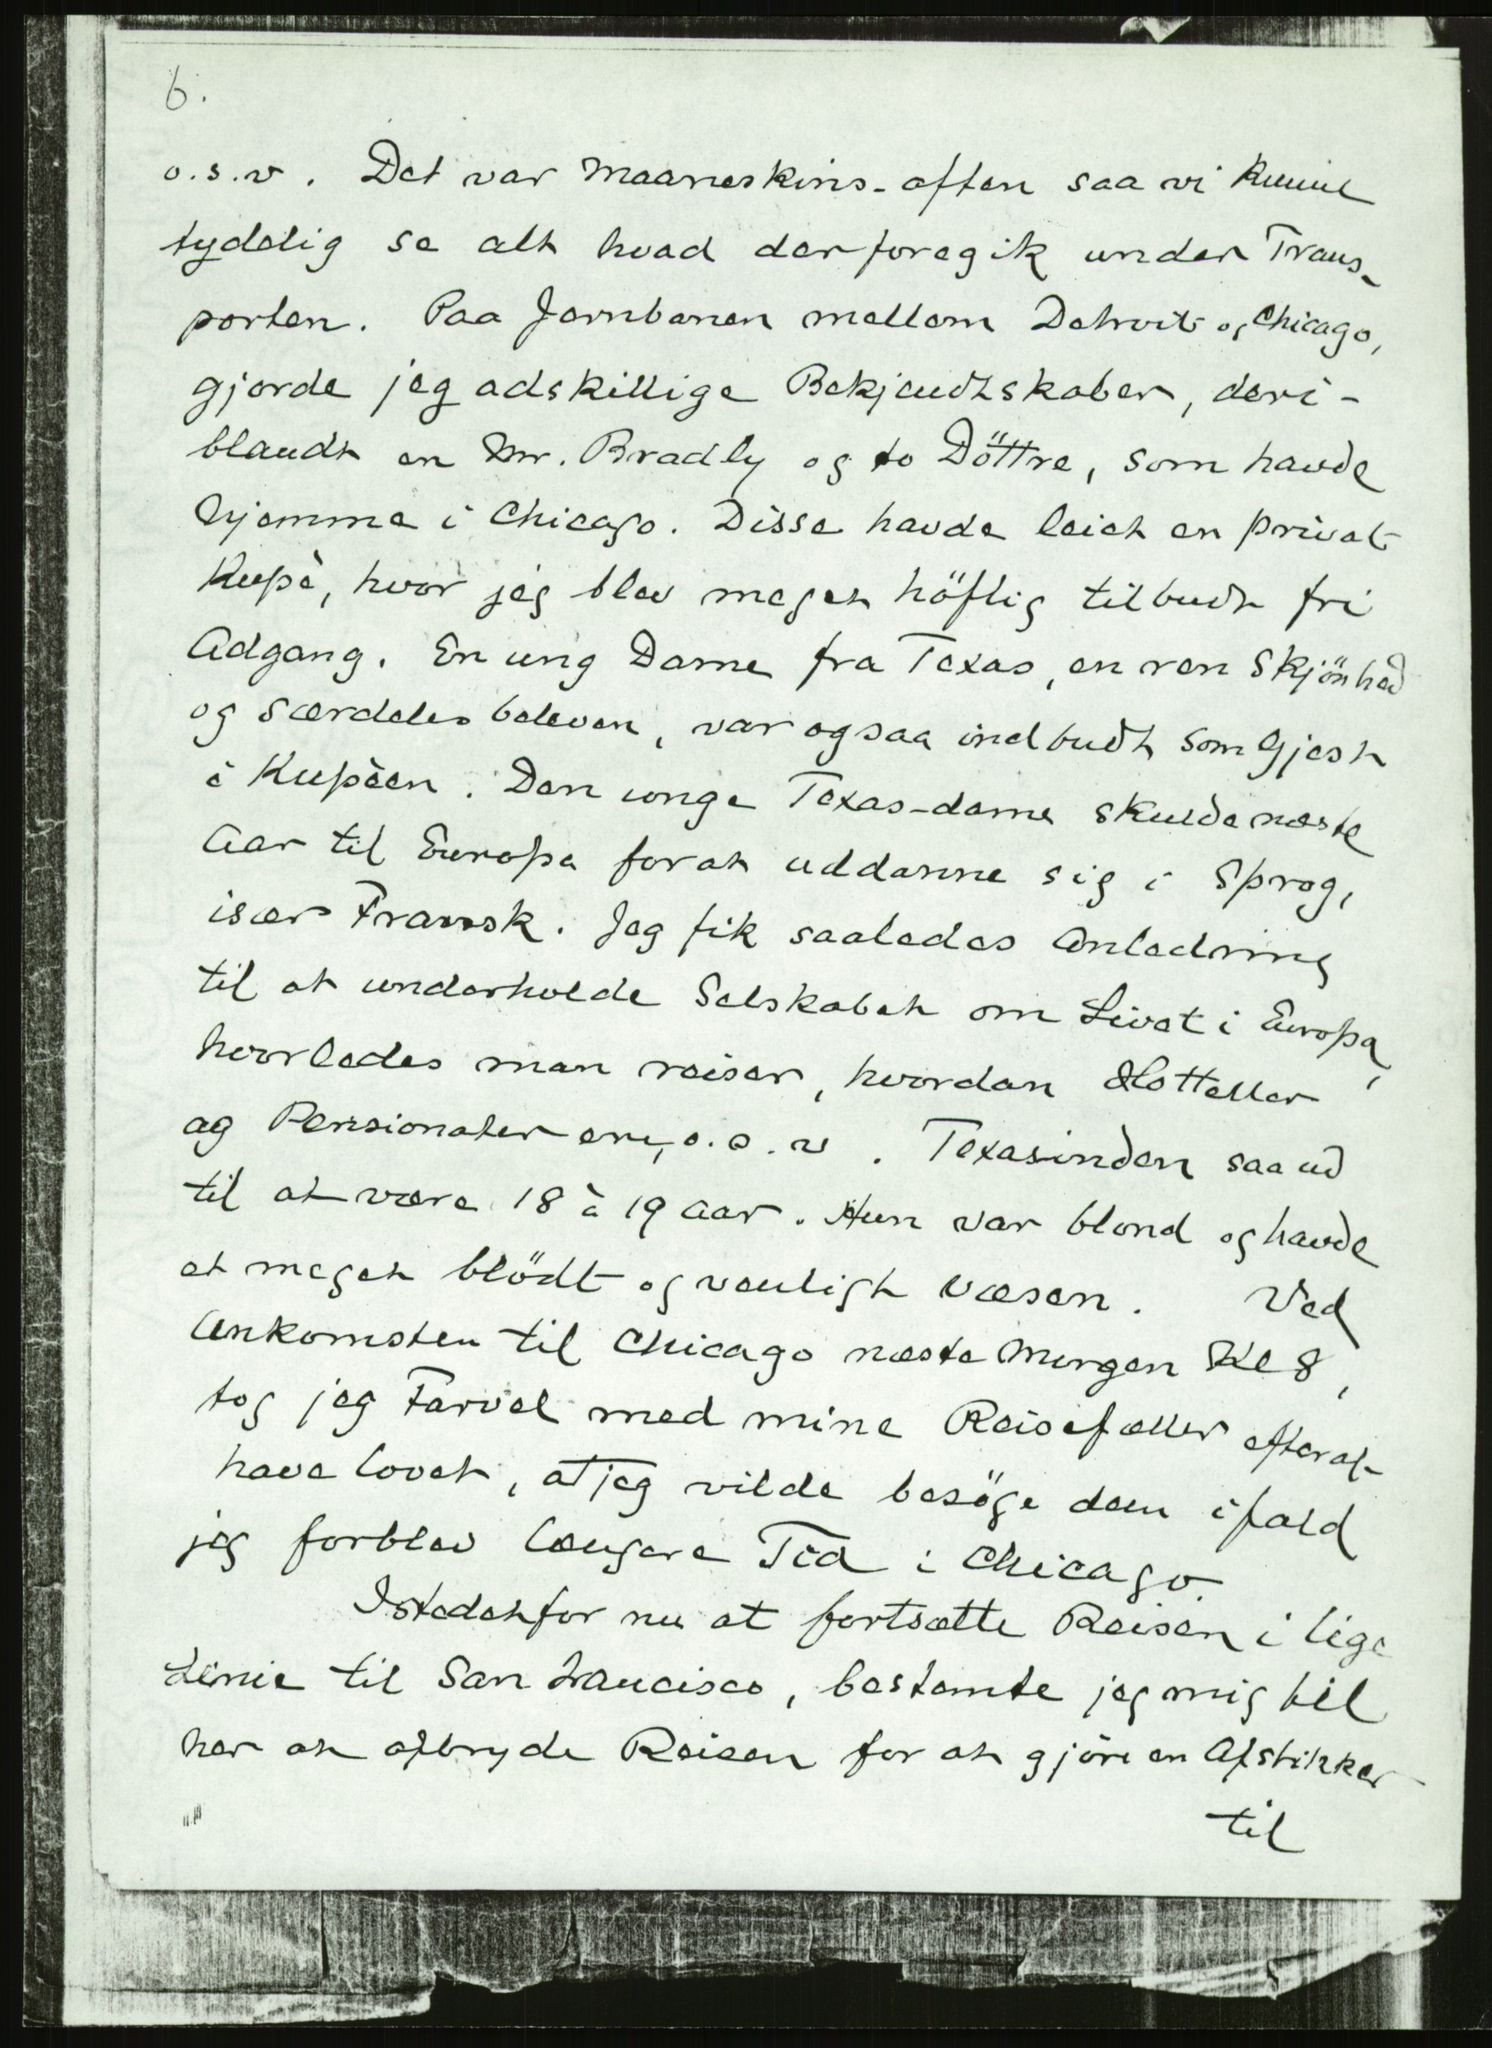 6.
o.s.v. Det var Maaneskins-aften saa vi kunne
tydelig se alt hvad der foregik under Trans-
porten. Paa Jernbanen mellem Detroit og Chicago,
gjorde jeg adskillige Bekjendtskaber, deri-
blandt en Mr. Bradly og to Döttre, som havde
hjemme i Chicago. Disse havde leiet en privat
Kupè, hvor jeg blev meget höflig tilbudt fri
Adgang. En ung Dame fra Texas, en ren Skjönhed
og særdeles beleven, var ogsaa indbudt som Gjest
i Kupèen. Den unge Texas-dame skulde næste
Aar til Europa for at uddanne sig i Sprog,
især Fransk. Jeg fik saaledes Anledning
til at underholde Selskabet om Livet i Europa,
hvorledes man reiser, hvordan Hotteller
og Pensionater ere, o.s.v. Texasinden saa ud
til at være 18 à 19 Aar. Hun var blond og havde
et meget blödt og venligt Væsen. Ved
Ankomsten til Chicago næste Morgen Kl 8,
tog jeg Farvel med mine Reisefæller efter at
have lovet, at jeg vilde besöge dem ifald
jeg forblev længere Tid i Chicago.
Istedetfor nu at fortsætte Reisen i lige
Linie til San Francisco, bestemte jeg mig til
her at afbryde Reisen for at gjöre en Afstikker
til